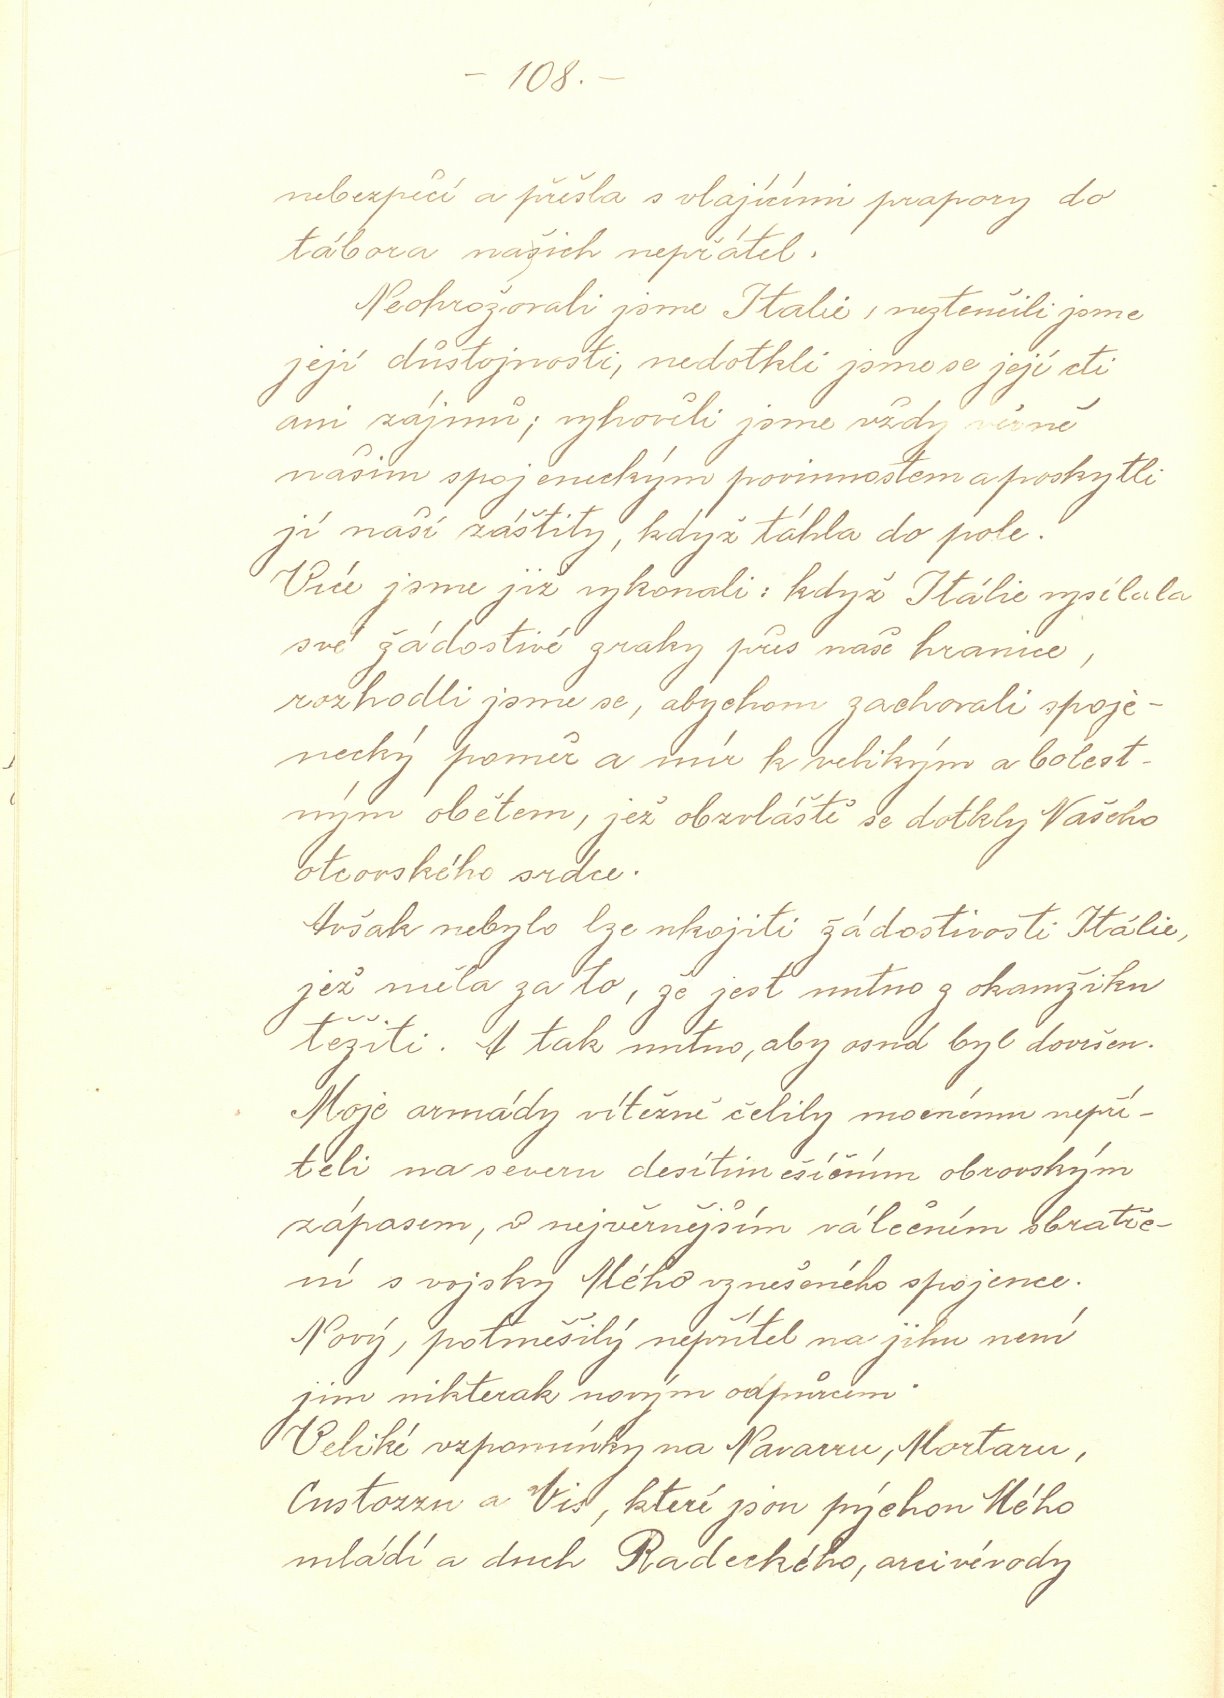 - 108. -
nebezpečí a přešla s vlajícími prapory do
tábora našich nepřátel.
Neohrožovali jsme Italii, neztenčili jsme
její důstojnosti, nedotkli jsme se její cti
ani zájmů; vyhověli jsme vždy věrně
našim spojeneckým povinnostem a poskytli
jí naší záštity, když táhla do pole.
Více jsme již vykonali: když Itálie vysílala
své žádostivé zraky přes naše hranice,
rozhodli jsme se, abychom zachovali spoje-
necký poměr a mír k velikým a bolest-
ným obětem, jež obzvláště se dotkly Našeho
otcovského srdce.
Avšak nebylo lze ukojiti žádostivosti Itálie,
jež měla za to, že jest nutno z okamžiku
těžiti. A tak nutno, aby osud byl dovršen.
Moje armády vítězně čelily mocnému nepří-
teli na severu desítiměsíčním obrovským
zápasem, v nejvěrnějším válečném sbratře-
ní s vojsky Mého vznešeného spojence.
Nový, potměšilý nepřítel na jihu není
jim nikterak novým odpůrcem.
Veliké vzpomínky na Navarru, Mortaru,
Custozzu a Vis, které jsou pýchou Mého
mládí a duch Radeckého, arcivévody